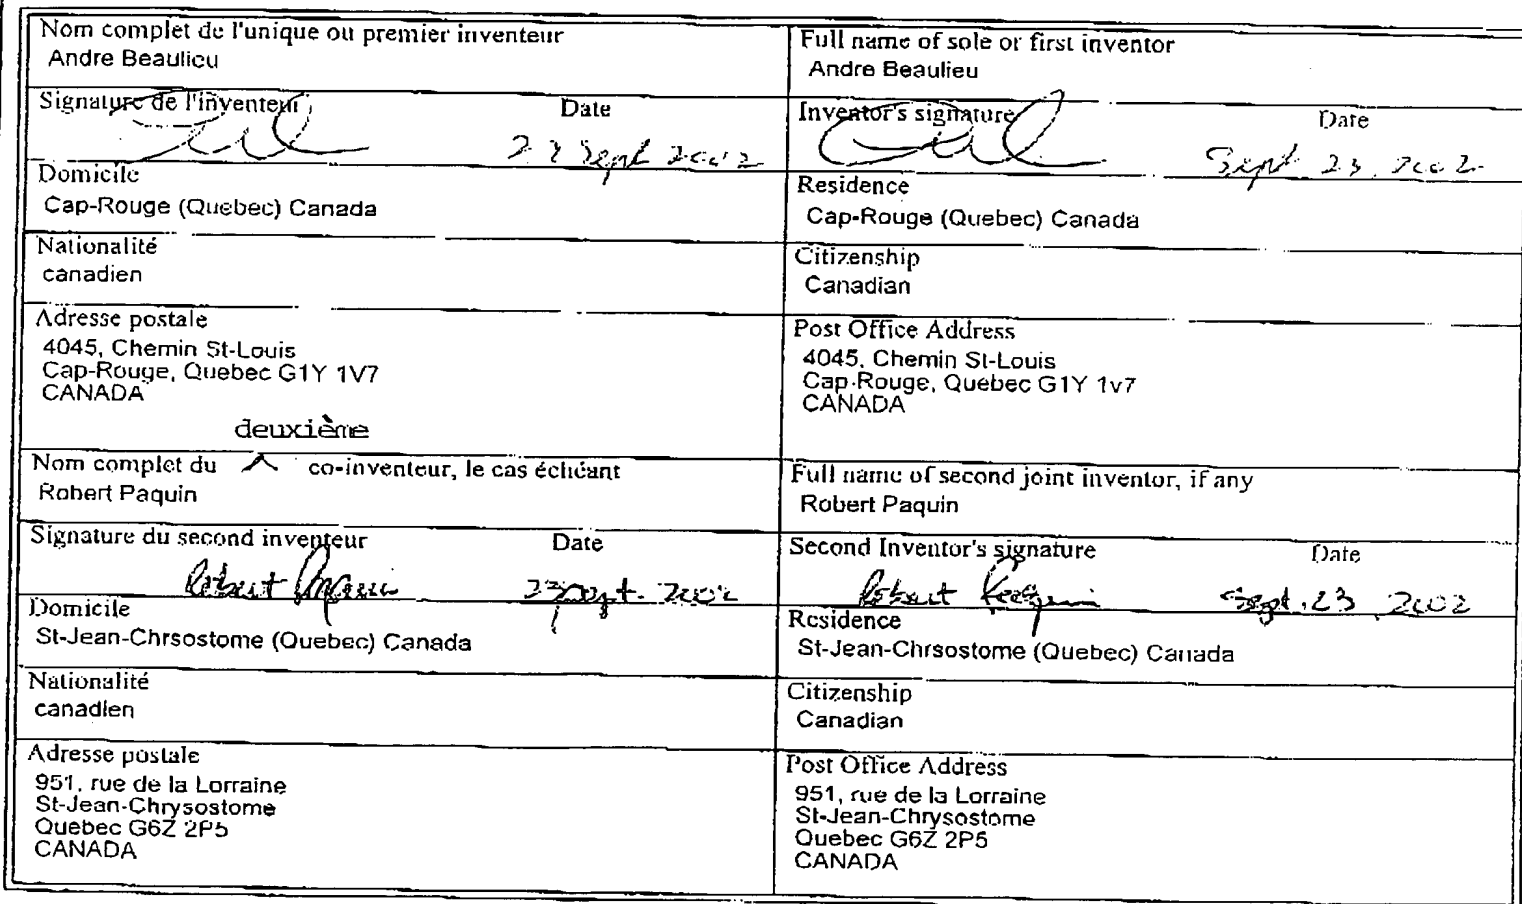 Nom complet de l'unique ou premier inventeur
Andre Beaulieu
Signature de l'inventeur Date
23 Sept 2002
Domicile
Cap-Rouge (Quebec) Canada
Nationalité
canadien
Adresse postale
4045, Chemin St-Louis
Cap-Rouge, Quebec G1Y 1V7
CANADA
deuxième
Nom complet du co-inventeur, le cas échéant
Robert Paquin
Signature du second inventeur Date
Robert Paquin 23 sept. 2002
Domicile
St-Jean-Chrsostome (Quebec) Canada
Nationalité
canadien
Adresse postale
951, rue de la Lorraine
St-Jean-Chrysostome
Quebec G6Z 2P5
CANADA
Full name of sole or first inventor
Andre Beaulieu
Inventor's signature Date
Sept 23, 2002
Residence
Cap-Rouge (Quebec) Canada
Citizenship
Canadian
Post Office Address
4045, Chemin St-Louis
Cap-Rouge, Quebec G1Y 1v7
CANADA
Full name of second joint inventor, if any
Robert Paquin
Second Inventor's signature Date
Robert Paquin Sept. 23, 2002
Residence
St-Jean-Chrsostome (Quebec) Canada
Citizenship
Canadian
Post Office Address
951, rue de la Lorraine
St-Jean-Chrysostome
Quebec G6Z 2P5
CANADA